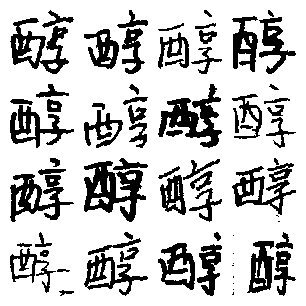 醇醇醇醇
醇醇醇醇
醇醇醇醇
醇醇醇醇